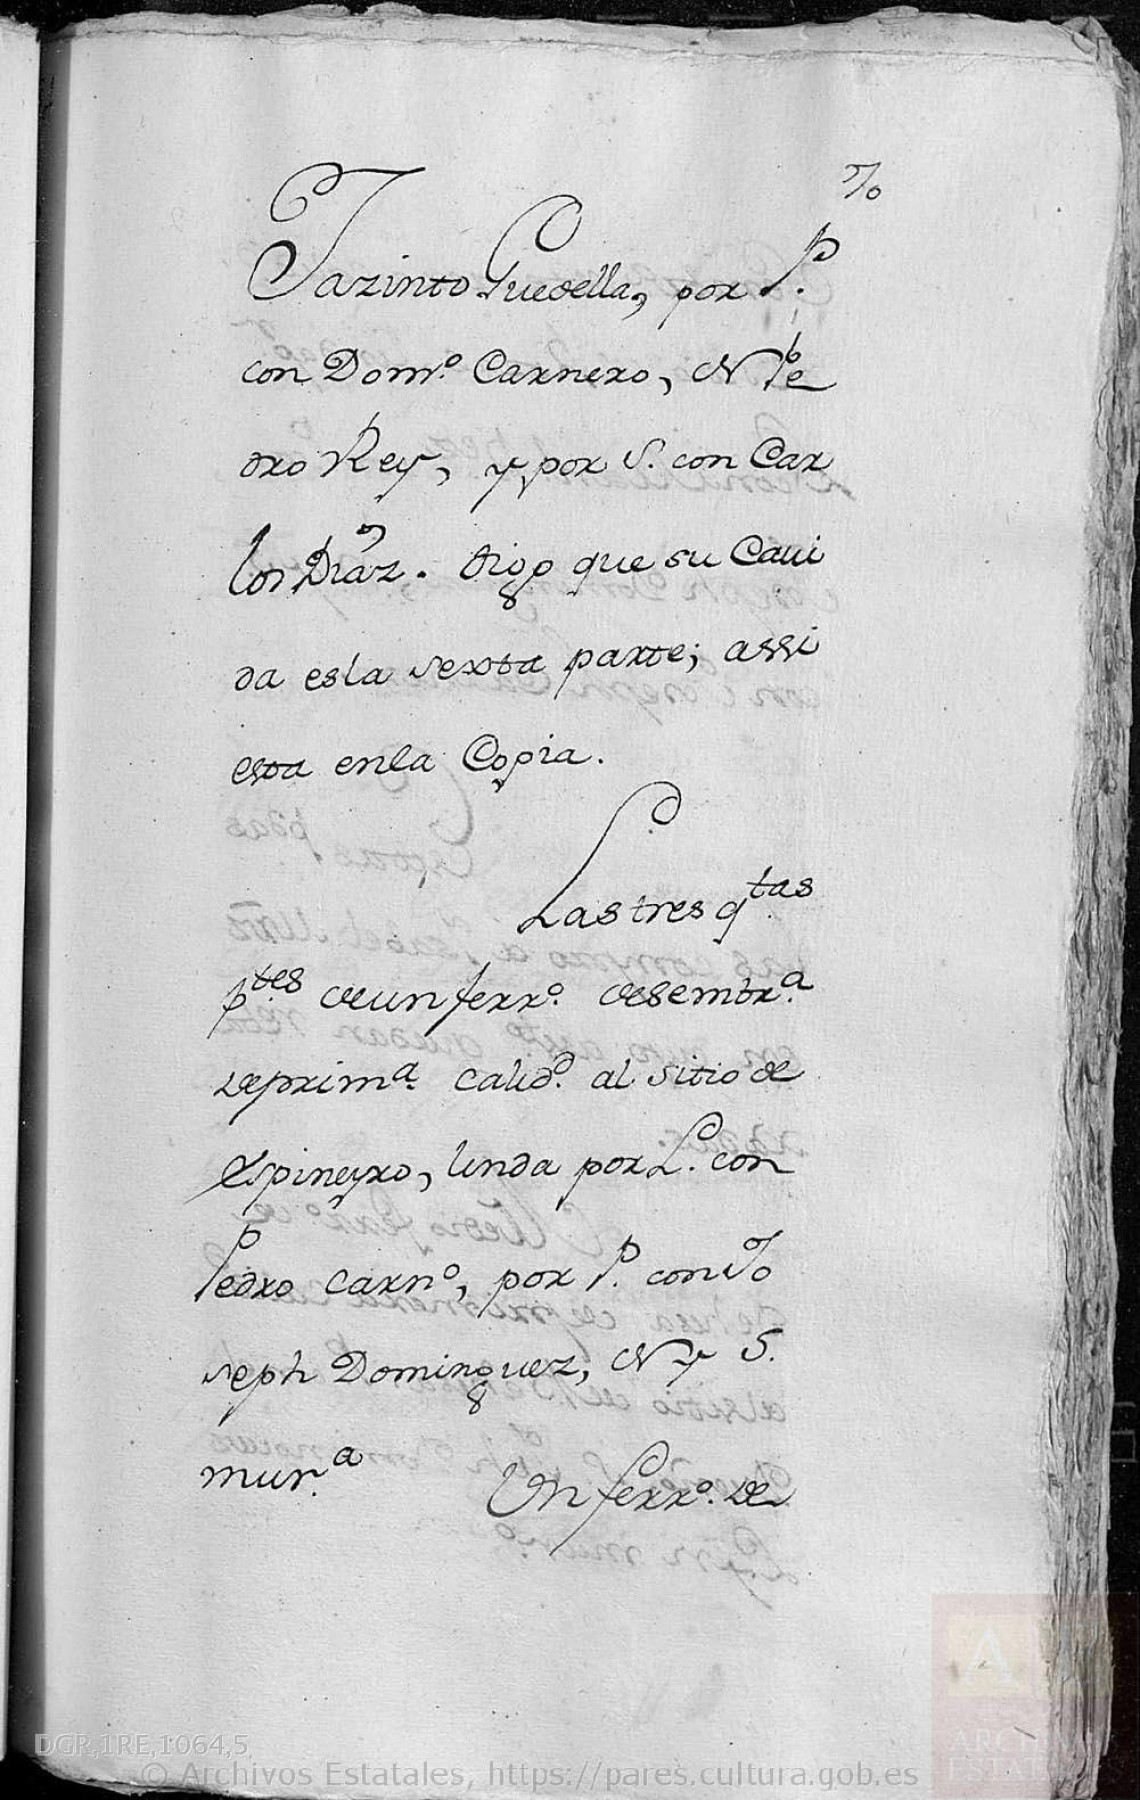 Jazinto Guedella, por P.
con Dom.º Carnero, N Pe
dro Rey, y por S. con Car
los Diaz. digo que su Cavi
da es la sexta parte; assi
esta enla Copia.
Las tres q.tas
p.tes de un ferr.º desembr.a
de prim.a calid.d al sitio de
Espineyro, linda por L. con
Pedro Carn.º, por P. con Jo
seph Dominguez, N y S.
mur.a Un ferr.º de
DGR,1RE,1064,5
© Archivos Estatales, https://pares.cultura.gob.es